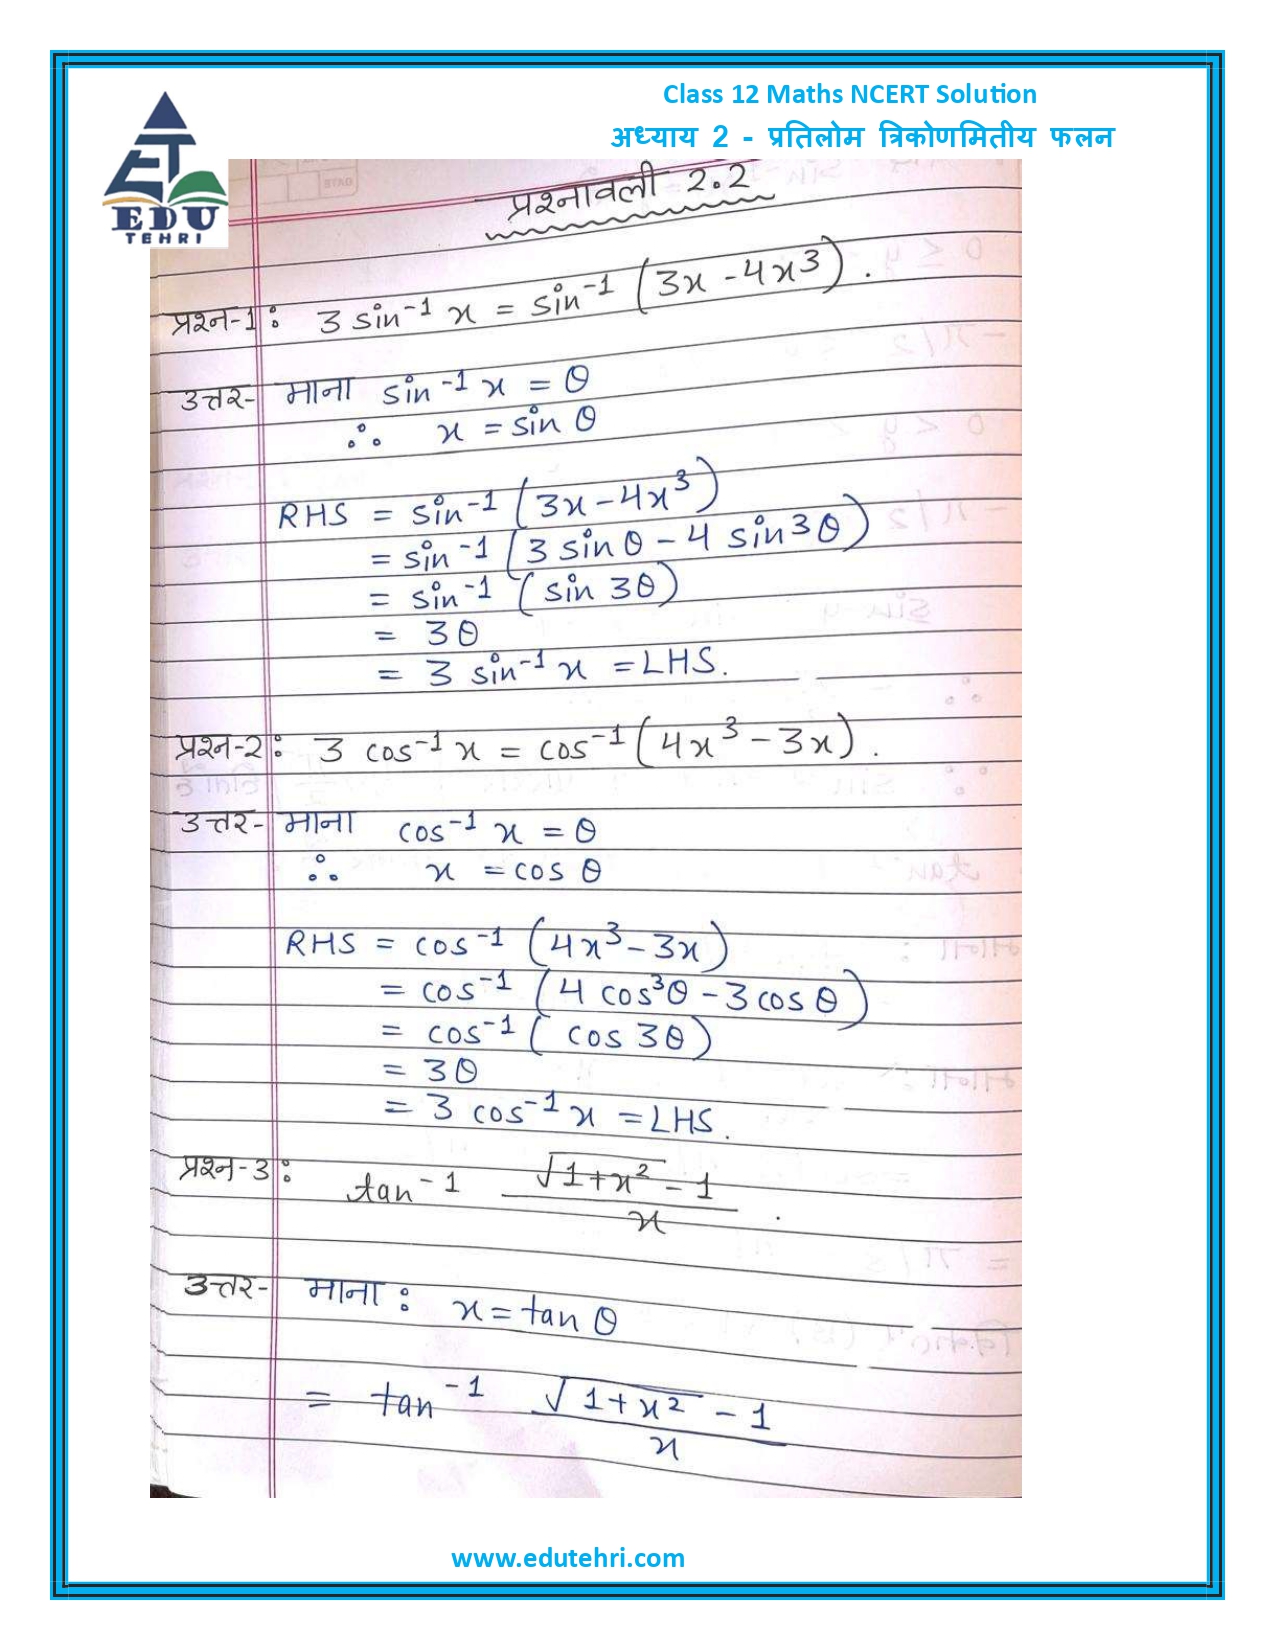 Class 12 Maths NCERT Solution
अध्याय 2 - प्रतिलोम त्रिकोणमितीय फलन
EDU
TEHRI
प्रश्नावली 2.2
प्रश्न-1: 3 sin⁻¹ x = sin⁻¹ (3x - 4x³).
उत्तर- माना sin⁻¹ x = θ
∴ x = sin θ
RHS = sin⁻¹ (3x - 4x³)
= sin⁻¹ (3 sin θ - 4 sin 3θ)
= sin⁻¹ (sin 3θ)
= 3θ
= 3 sin⁻¹ x = LHS.
प्रश्न-2: 3 cos⁻¹ x = cos⁻¹ (4x³ - 3x).
उत्तर- माना cos⁻¹ x = θ
∴ x = cos θ
RHS = cos⁻¹ (4x³ - 3x)
= cos⁻¹ (4 cos³θ - 3 cos θ)
= cos⁻¹ ( cos 3θ)
= 3θ
= 3 cos⁻¹ x = LHS.
प्रश्न-3: tan⁻¹ √1+x² - 1
x .
उत्तर- माना : x = tan θ
= tan⁻¹ √1+x² - 1
x
www.edutehri.com